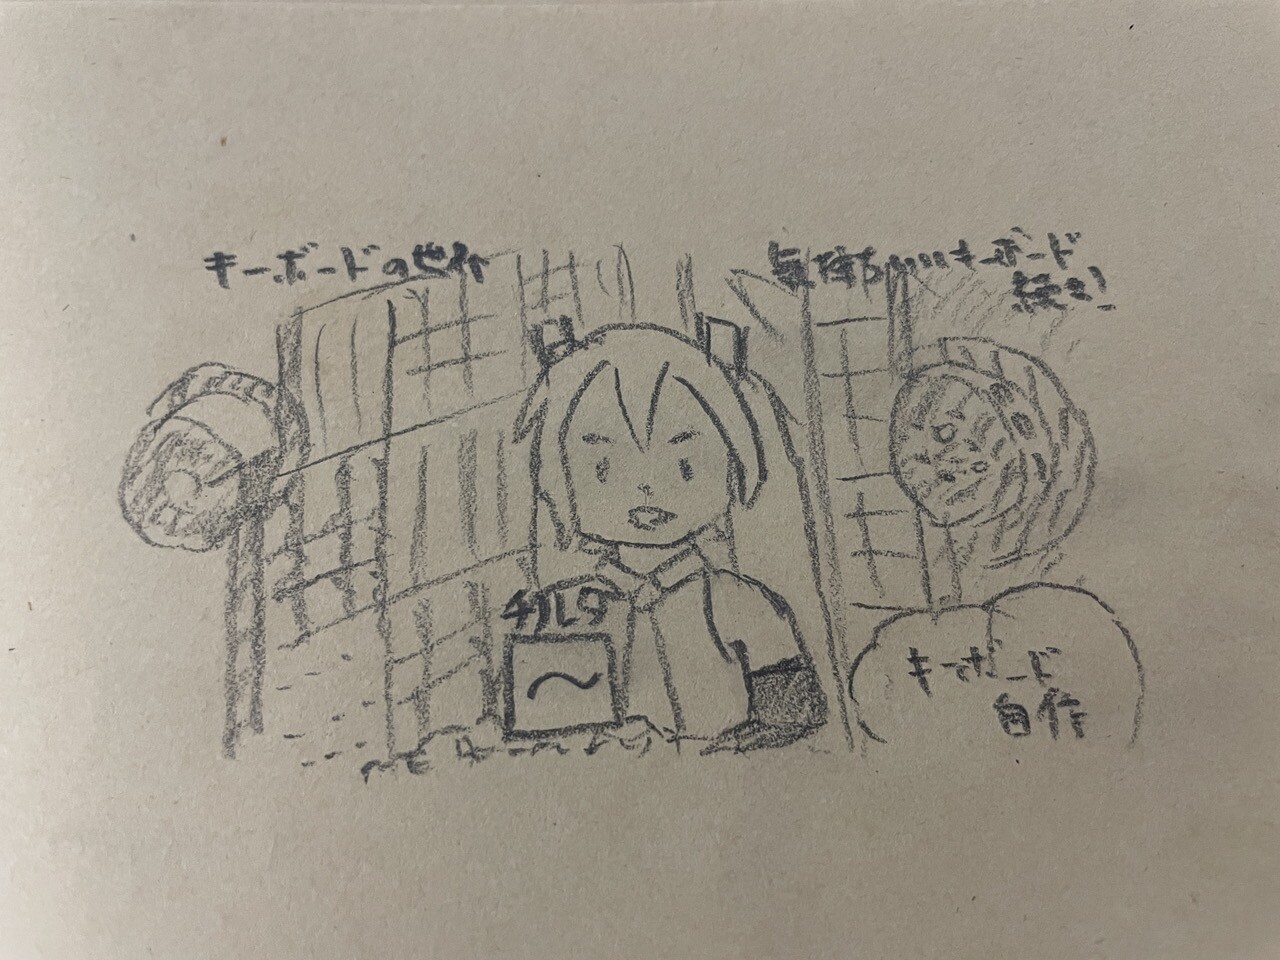 キーボードの世介
気持ちいいキーボード
続き!
チルダ
〜
キーボード
自作